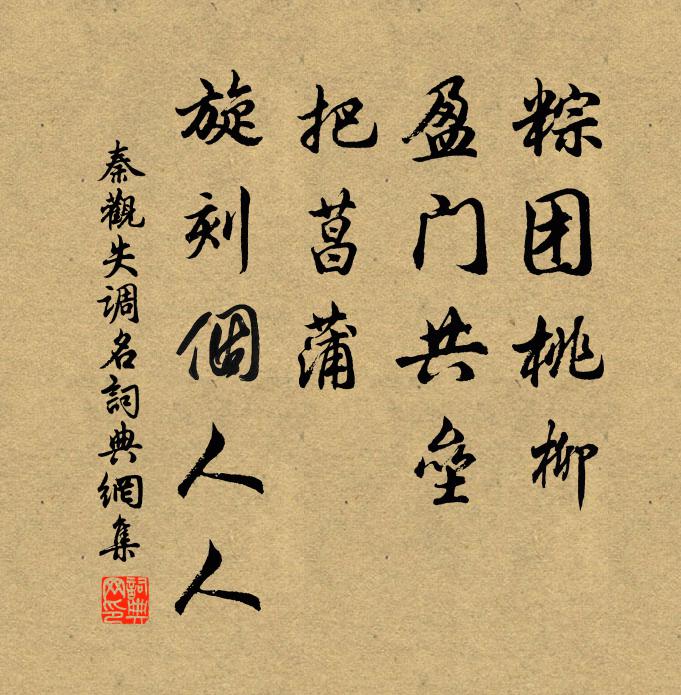 粽团桃柳
盈门共垒
把菖蒲
旋刻個人人
秦觀失调名詞典網集
詞典网印